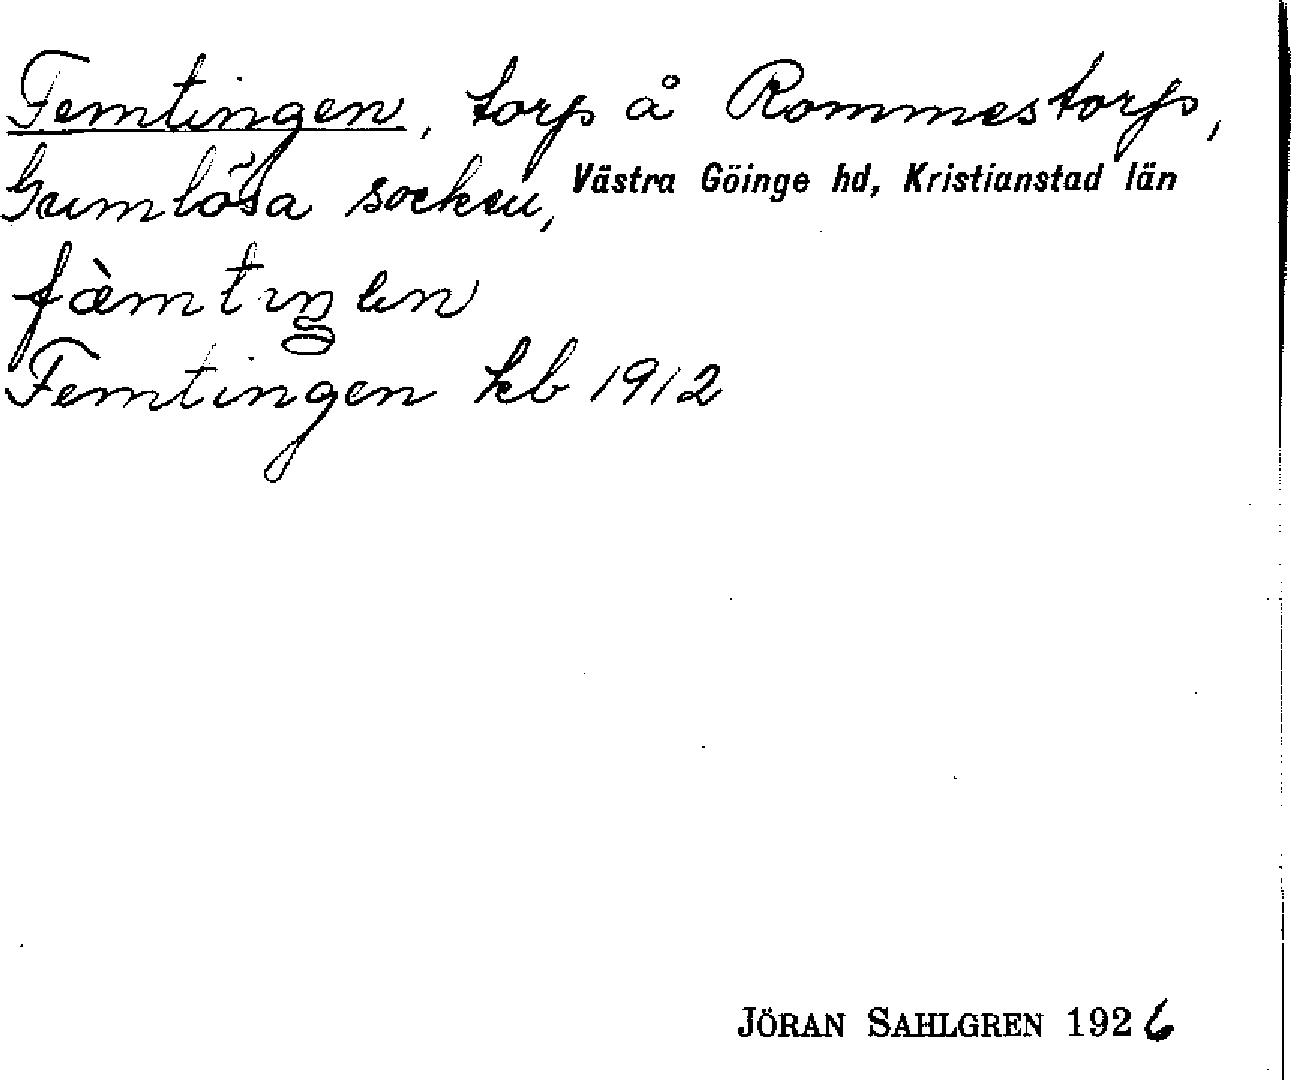 Femtingen, torp å Rommestorp,
Gumlösa socken, Västra Göinge hd, Kristianstad län
fæ̀mtıŋen
Femtingen kb 1912
JÖRAN SAHLGREN 1926